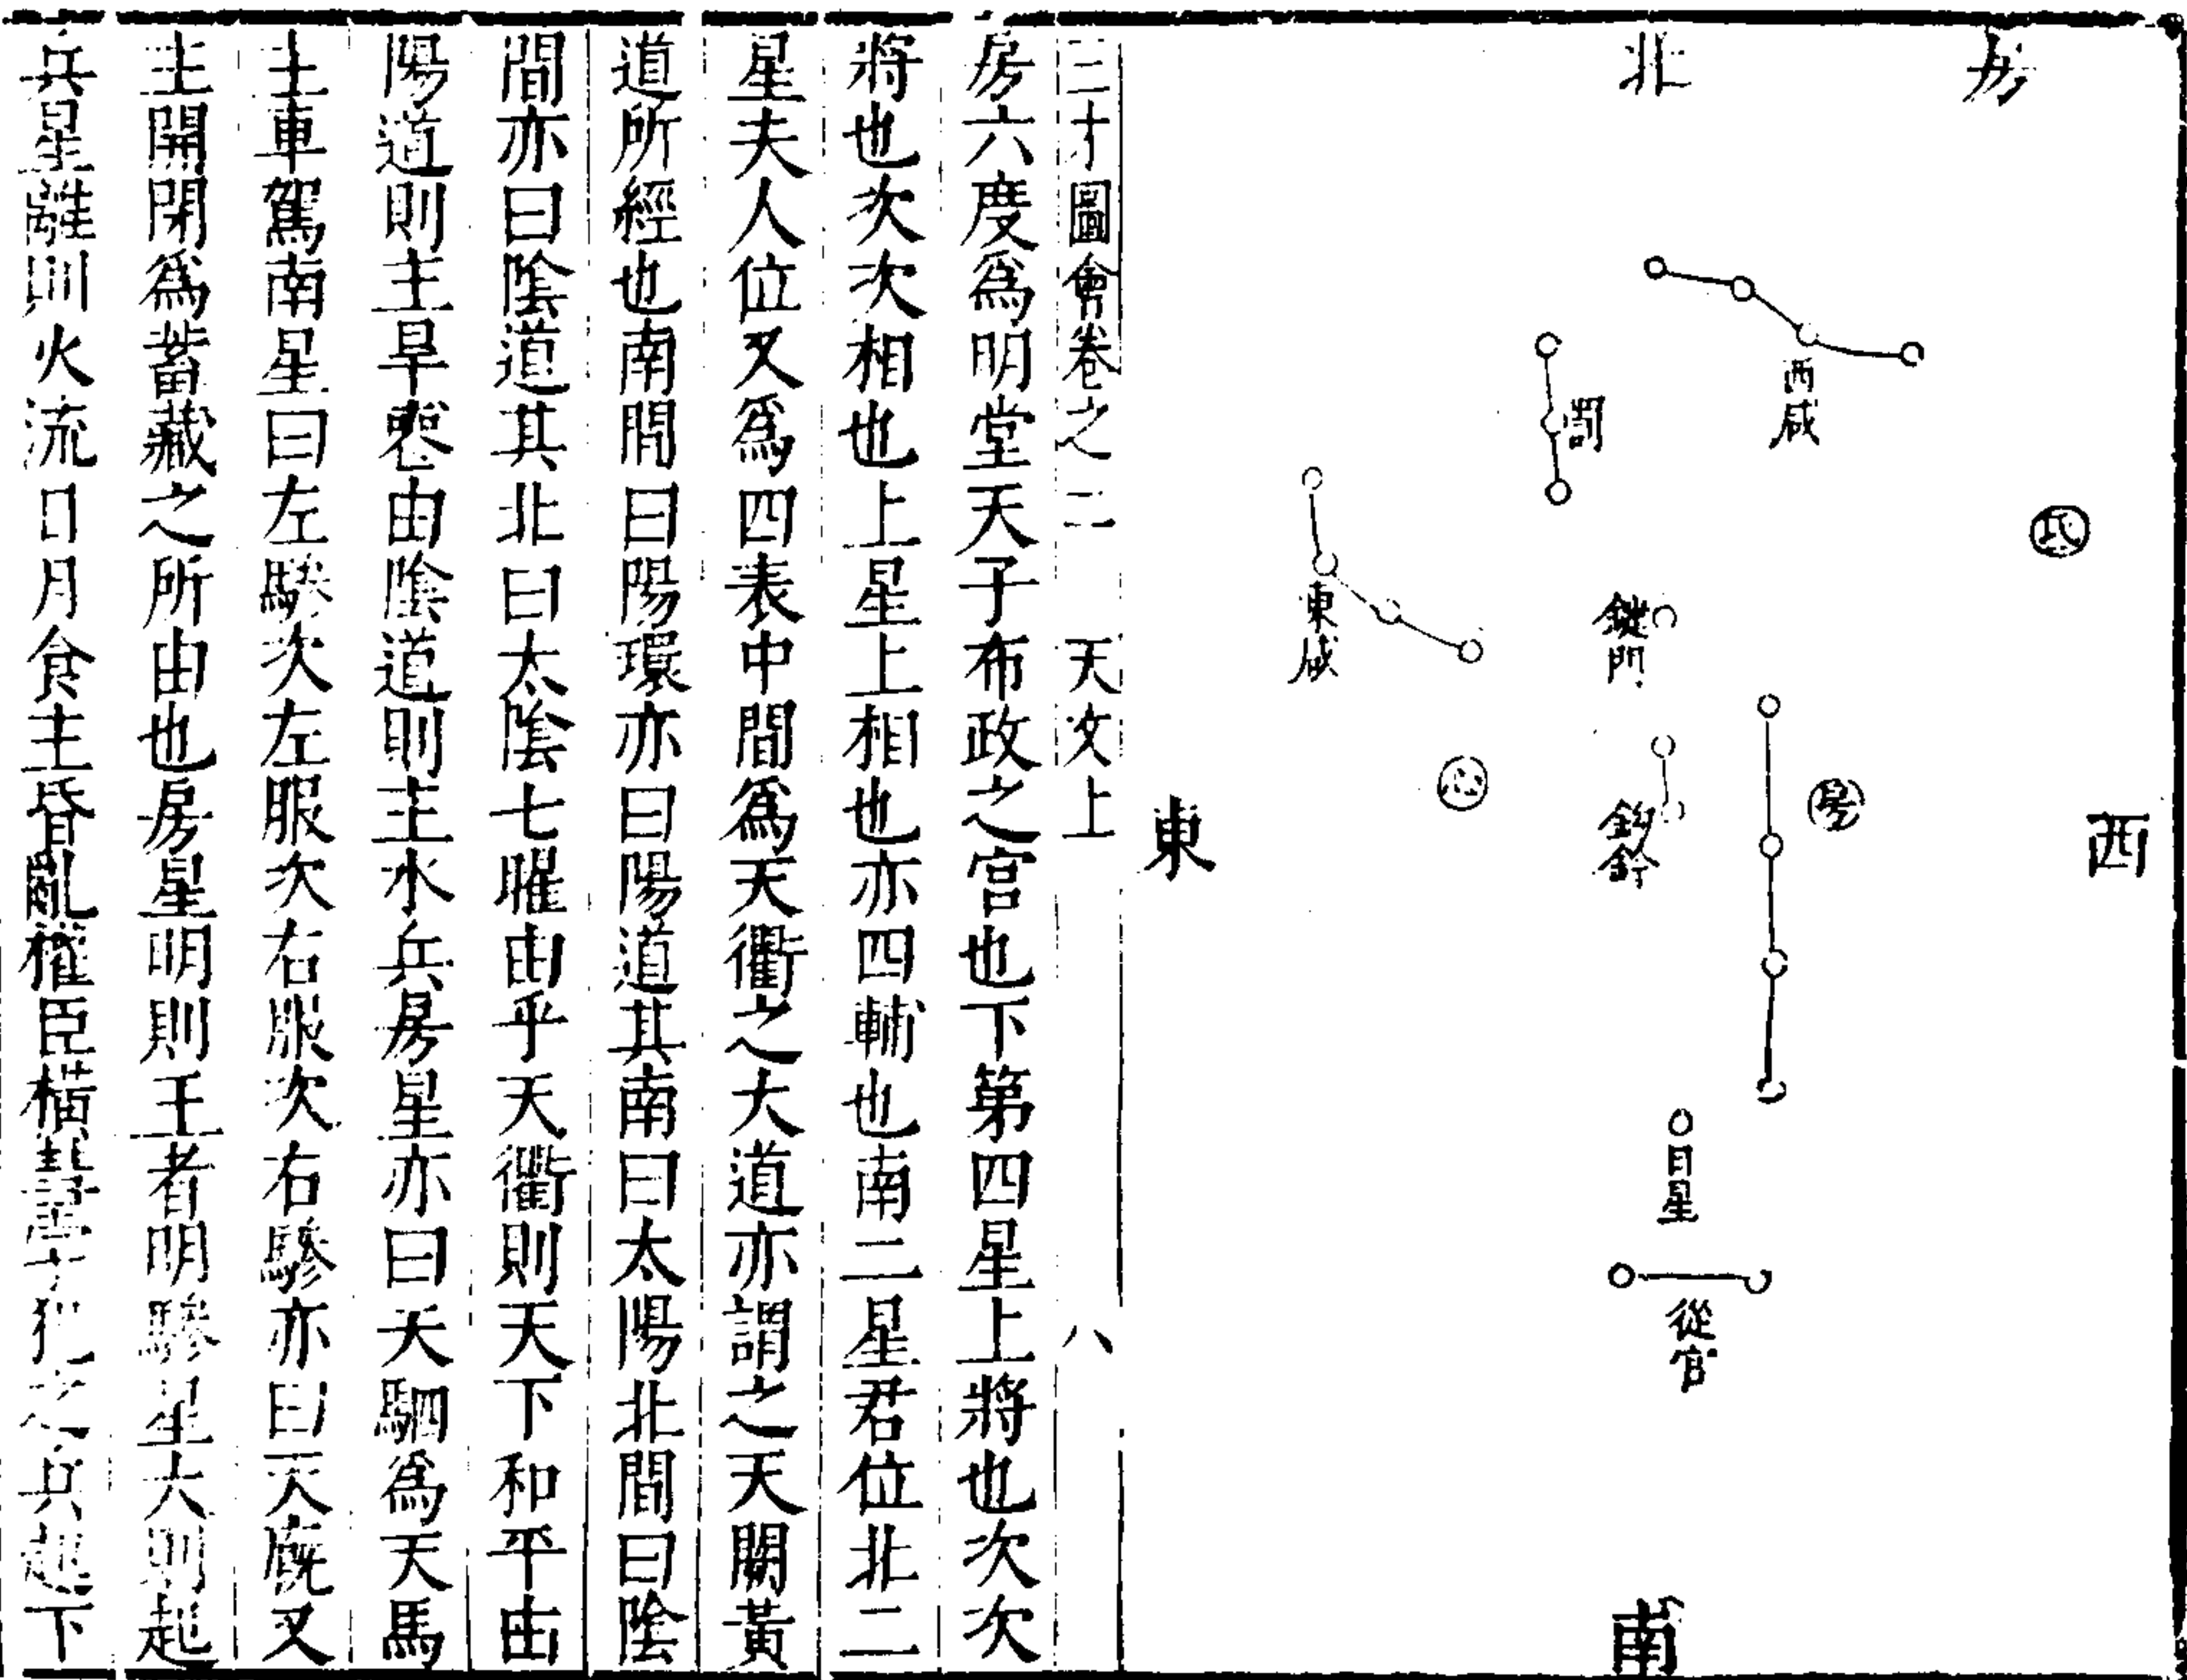 房
北
西咸
罰
氐
東咸
鍵門
心
房
鈎鈐
西
東
日星
從官
南
三才圖會卷之二 天文上 八
房六度爲明堂天子布政之宫也下第四星上將也次次
將也次次相也上星上相也亦四輔也南二星君位北二
星夫人位又爲四表中間爲天衢之大道亦謂之天闗黃
道所經也南間曰陽環亦曰陽道其南曰太陽北間曰陰
間亦曰陰道其北曰太陰七曜由乎天衢則天下和平由
陽道則主旱喪由陰道則主水兵房星亦曰天駟爲天馬
主車駕南星曰左驂次左服次右服次右驂亦曰天廐又
主開閉爲蓄藏之所由也房星明則王者明驂星大則起
兵星離則火流日月食主昏亂權臣橫彗孛犯之兵起下